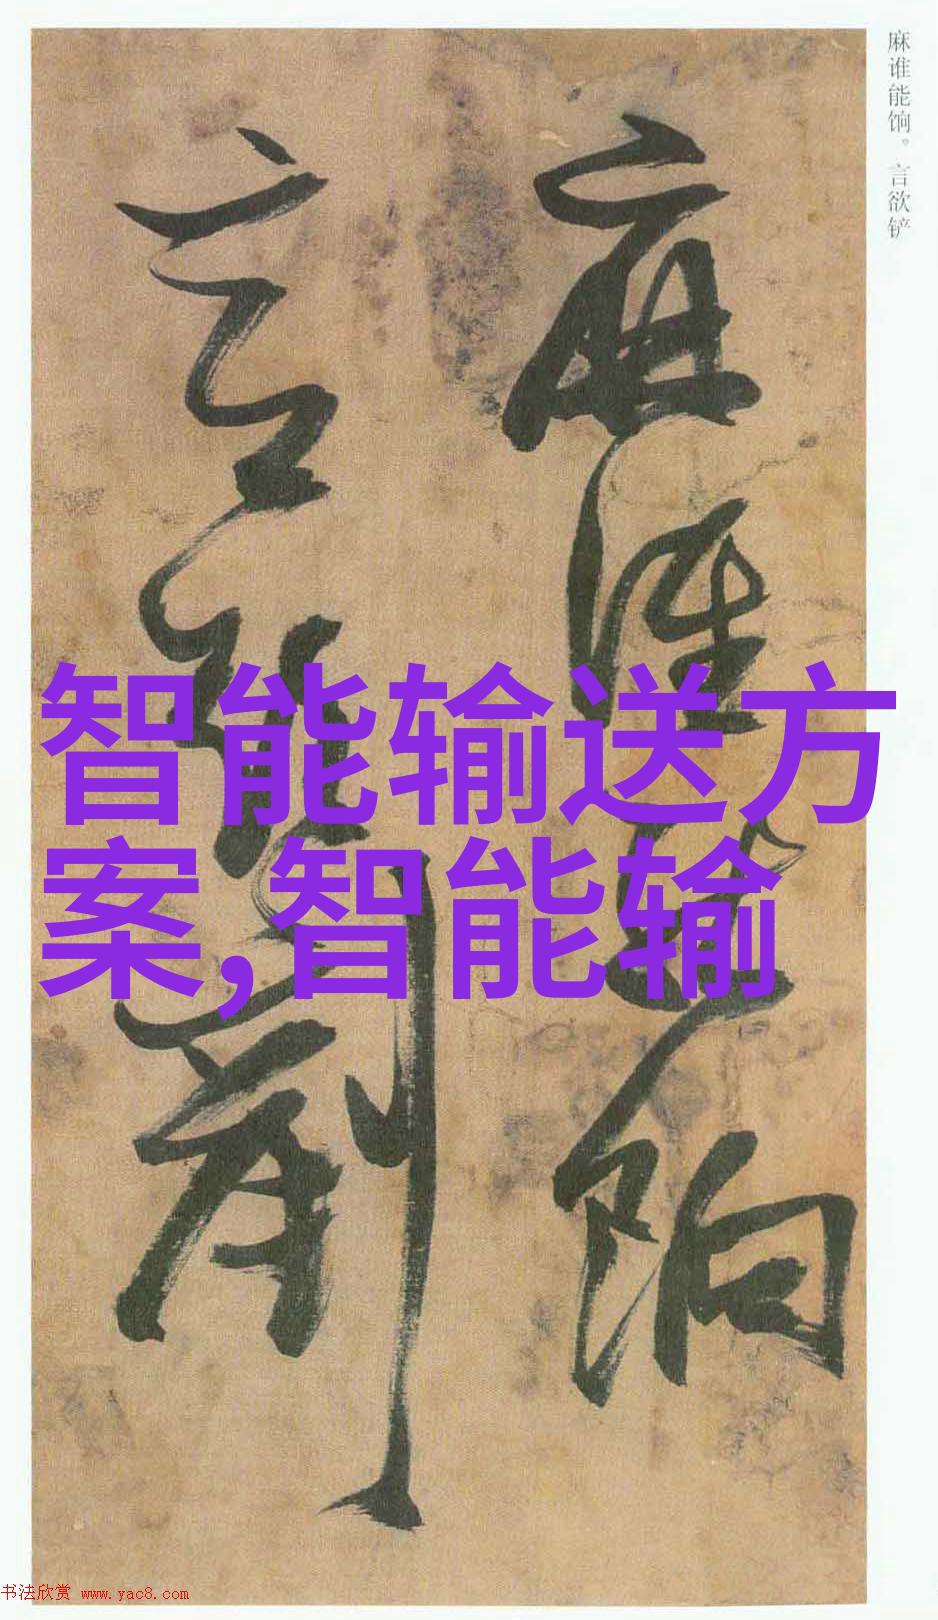 麻谁能饷。言欲铲
麻谁能饷
言欲剷
智能输送方
案,智能输
书法欣赏 www.yac8.com